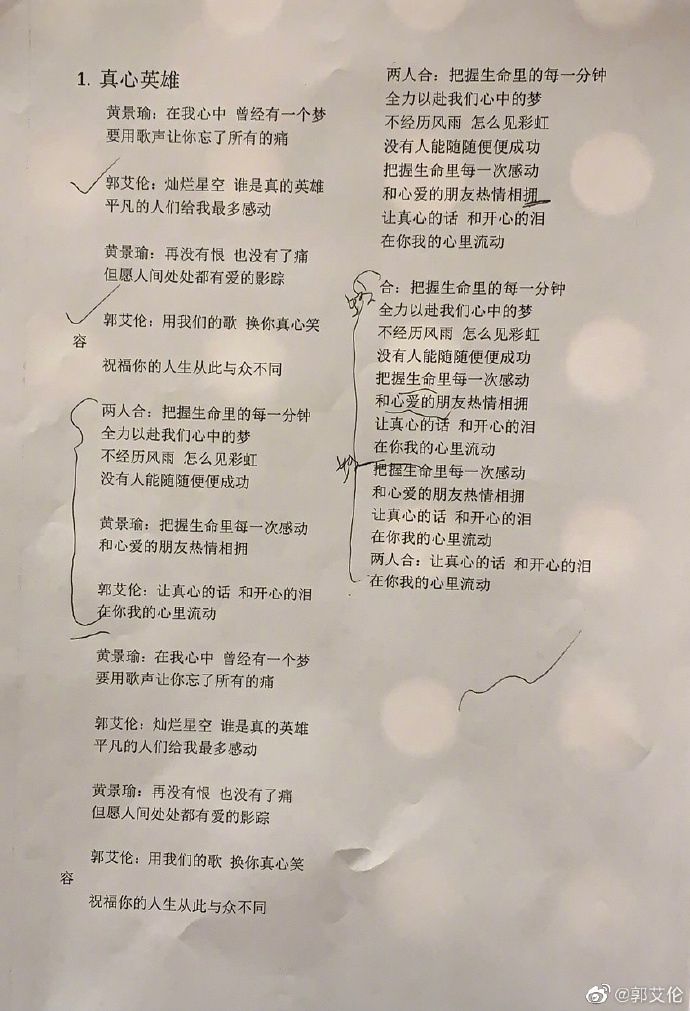 1. 真心英雄
黄景瑜：在我心中 曾经有一个梦
要用歌声让你忘了所有的痛
郭艾伦：灿烂星空 谁是真的英雄
平凡的人们给我最多感动
黄景瑜：再没有恨 也没有了痛
但愿人间处处都有爱的影踪
郭艾伦：用我们的歌 换你真心笑
容
祝福你的人生从此与众不同
两人合：把握生命里的每一分钟
全力以赴我们心中的梦
不经历风雨 怎么见彩虹
没有人能随随便便成功
黄景瑜：把握生命里每一次感动
和心爱的朋友热情相拥
郭艾伦：让真心的话 和开心的泪
在你我的心里流动
黄景瑜：在我心中 曾经有一个梦
要用歌声让你忘了所有的痛
郭艾伦：灿烂星空 谁是真的英雄
平凡的人们给我最多感动
黄景瑜：再没有恨 也没有了痛
但愿人间处处都有爱的影踪
郭艾伦：用我们的歌 换你真心笑
容
祝福你的人生从此与众不同
两人合：把握生命里的每一分钟
全力以赴我们心中的梦
不经历风雨 怎么见彩虹
没有人能随随便便成功
把握生命里每一次感动
和心爱的朋友热情相拥
让真心的话 和开心的泪
在你我的心里流动
合：把握生命里的每一分钟
全力以赴我们心中的梦
不经历风雨 怎么见彩虹
没有人能随随便便成功
把握生命里每一次感动
和心爱的朋友热情相拥
让真心的话 和开心的泪
在你我的心里流动
把握生命里每一次感动
和心爱的朋友热情相拥
让真心的话 和开心的泪
在你我的心里流动
两人合：让真心的话 和开心的泪
在你我的心里流动
@郭艾伦